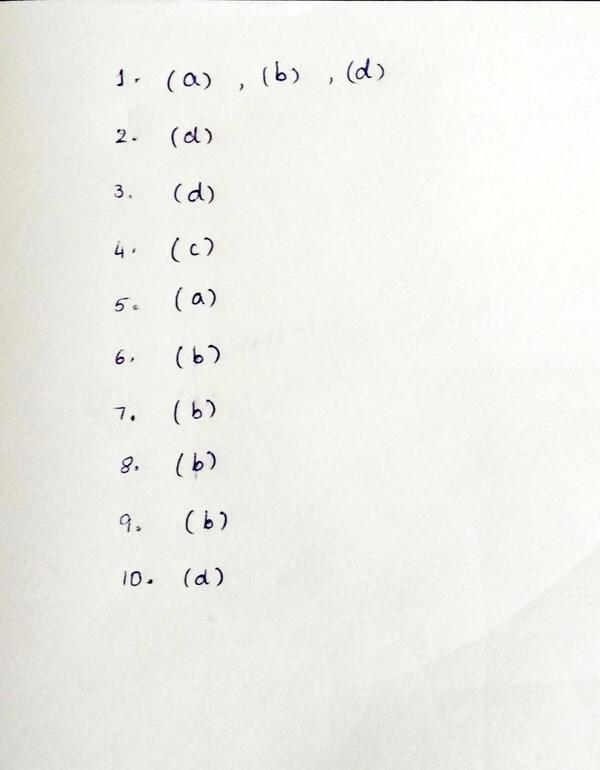 1. (a) , (b) , (d)
2. (d)
3. (d)
4. (c)
5. (a)
6. (b)
7. (b)
8. (b)
9. (b)
10. (d)